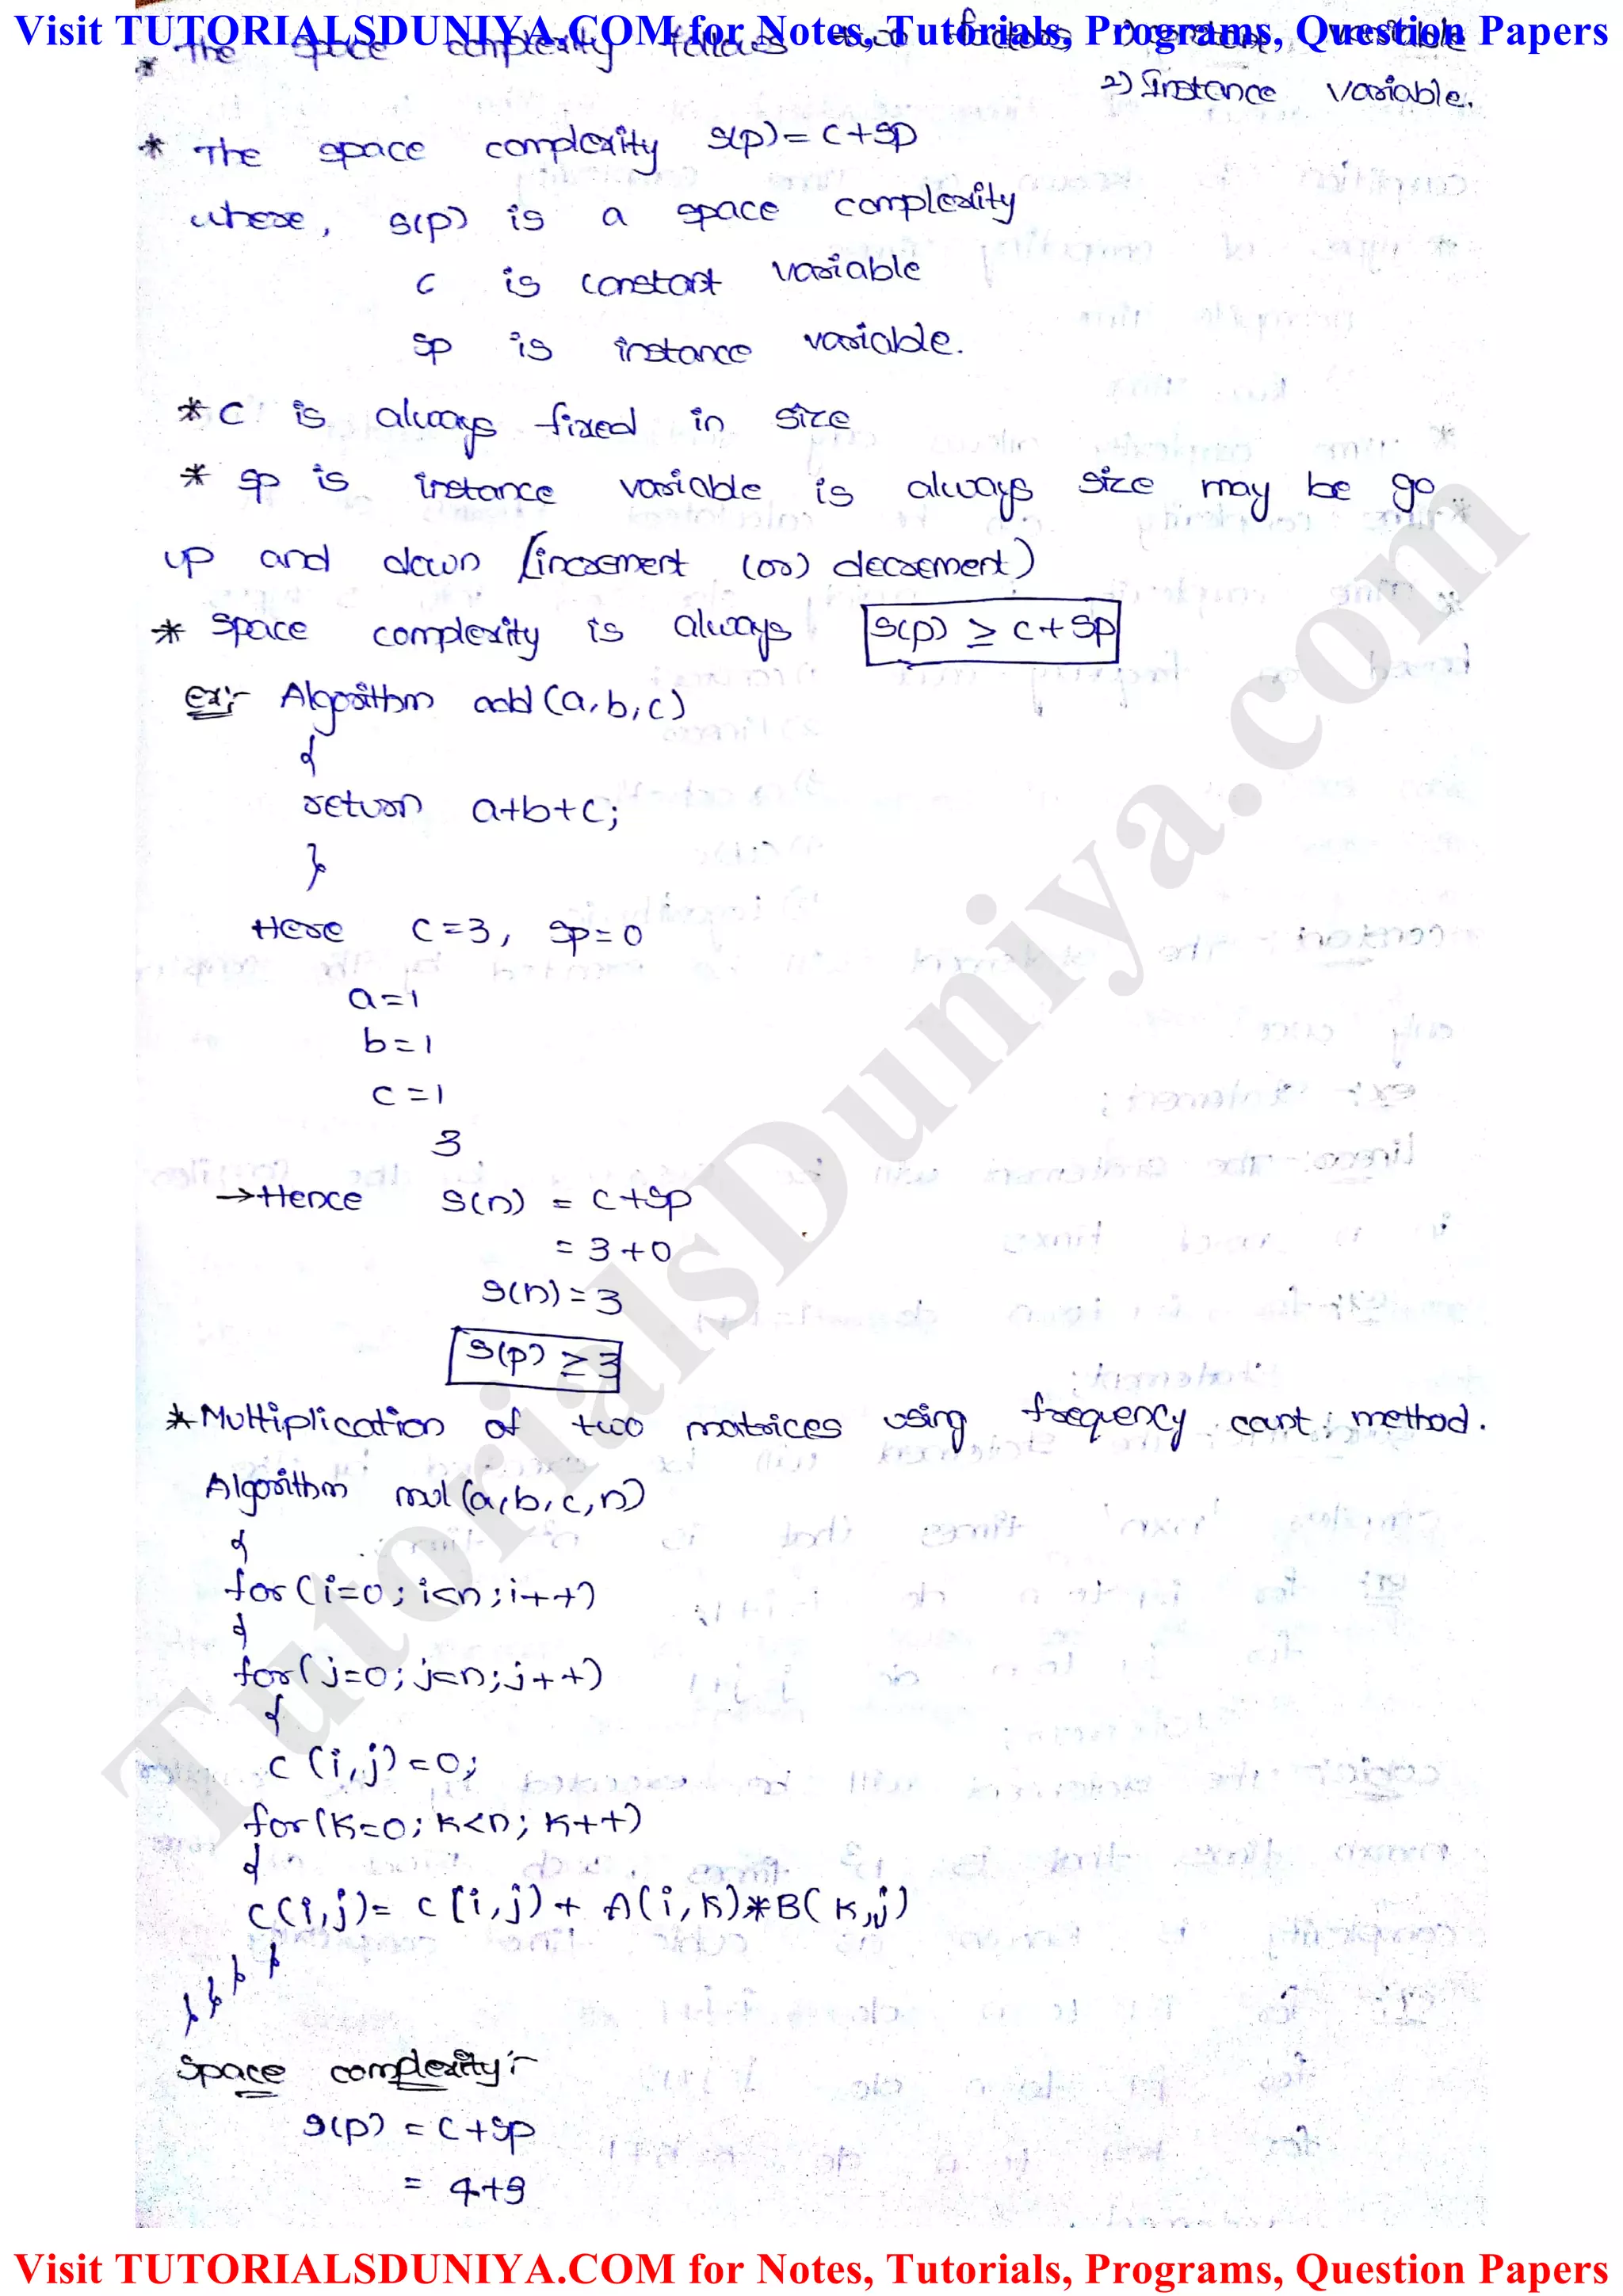 Visit TUTORIALSDUNIYA.COM for Notes, Tutorials, Programs, Question Papers
* The space complexity follows two factors 1) constant variable
2) Instance variable.
* The space complexity s(p) = c+sp
where, s(p) is a space complexity
c is constant variable
sp is instance variable.
* c is always fixed in size
* sp is instance variable is always size may be go
up and down (increment (or) decrement)
* space complexity is always s(p) ≥ c+sp
ex:- Algorithm add(a,b,c)
{
return a+b+c;
}
Here c=3, sp=0
a=1
b=1
c=1
3
→Hence s(n) = c+sp
= 3+0
s(n)=3
s(p) ≥3
*Multiplication of two matrices using frequency count method.
Algorithm mul(a,b,c,n)
{
for(i=0; i<n; i++)
{
for(j=0; j<n; j++)
{
c (i,j)=0;
for(k=0; k<n; k++)
{
c(i,j)= c[i,j)+ A(i,k)*B(k,j)
}}}}
space complexity:-
s(p) = c+sp
= 4+9
TutorialsDuniya.com
Visit TUTORIALSDUNIYA.COM for Notes, Tutorials, Programs, Question Papers